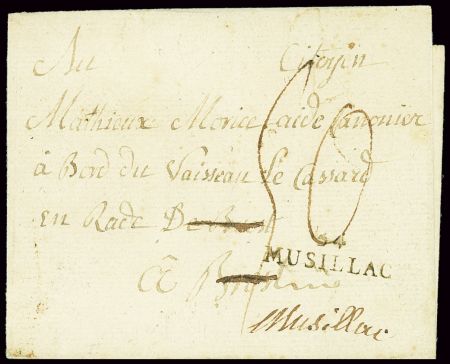 Au Citoyin
Mathieux Morice aide Canonier
à Bord du Vaisseau Le Cassard
en Rade De Brest
à
54
MUSILLAC
Musillac